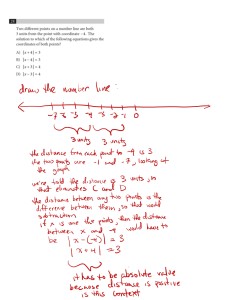 Two different points on a number line are both
3 units from the point with coordinate −4. The
solution to which of the following equations gives the
coordinates of both points?
A) |x + 4| = 3
B) |x − 4| = 3
C) |x + 3| = 4
D) |x − 3| = 4
draw the number line:
-7 -6 -5 -4 -3 -2 -1 0
3 units 3 units
the distance from each point to -4 is 3
the two points are -1 and -7, looking at
the graph
we're told the distance is 3 units, so
that eliminates C and D
the distance between any two points is the
difference between them, so that would
subtraction
if x is one the points, then the distance
between x and -4 would have to
be |x-(-4)| = 3
|x+4| = 3
it has to be absolute value
because distance is positive
is this context